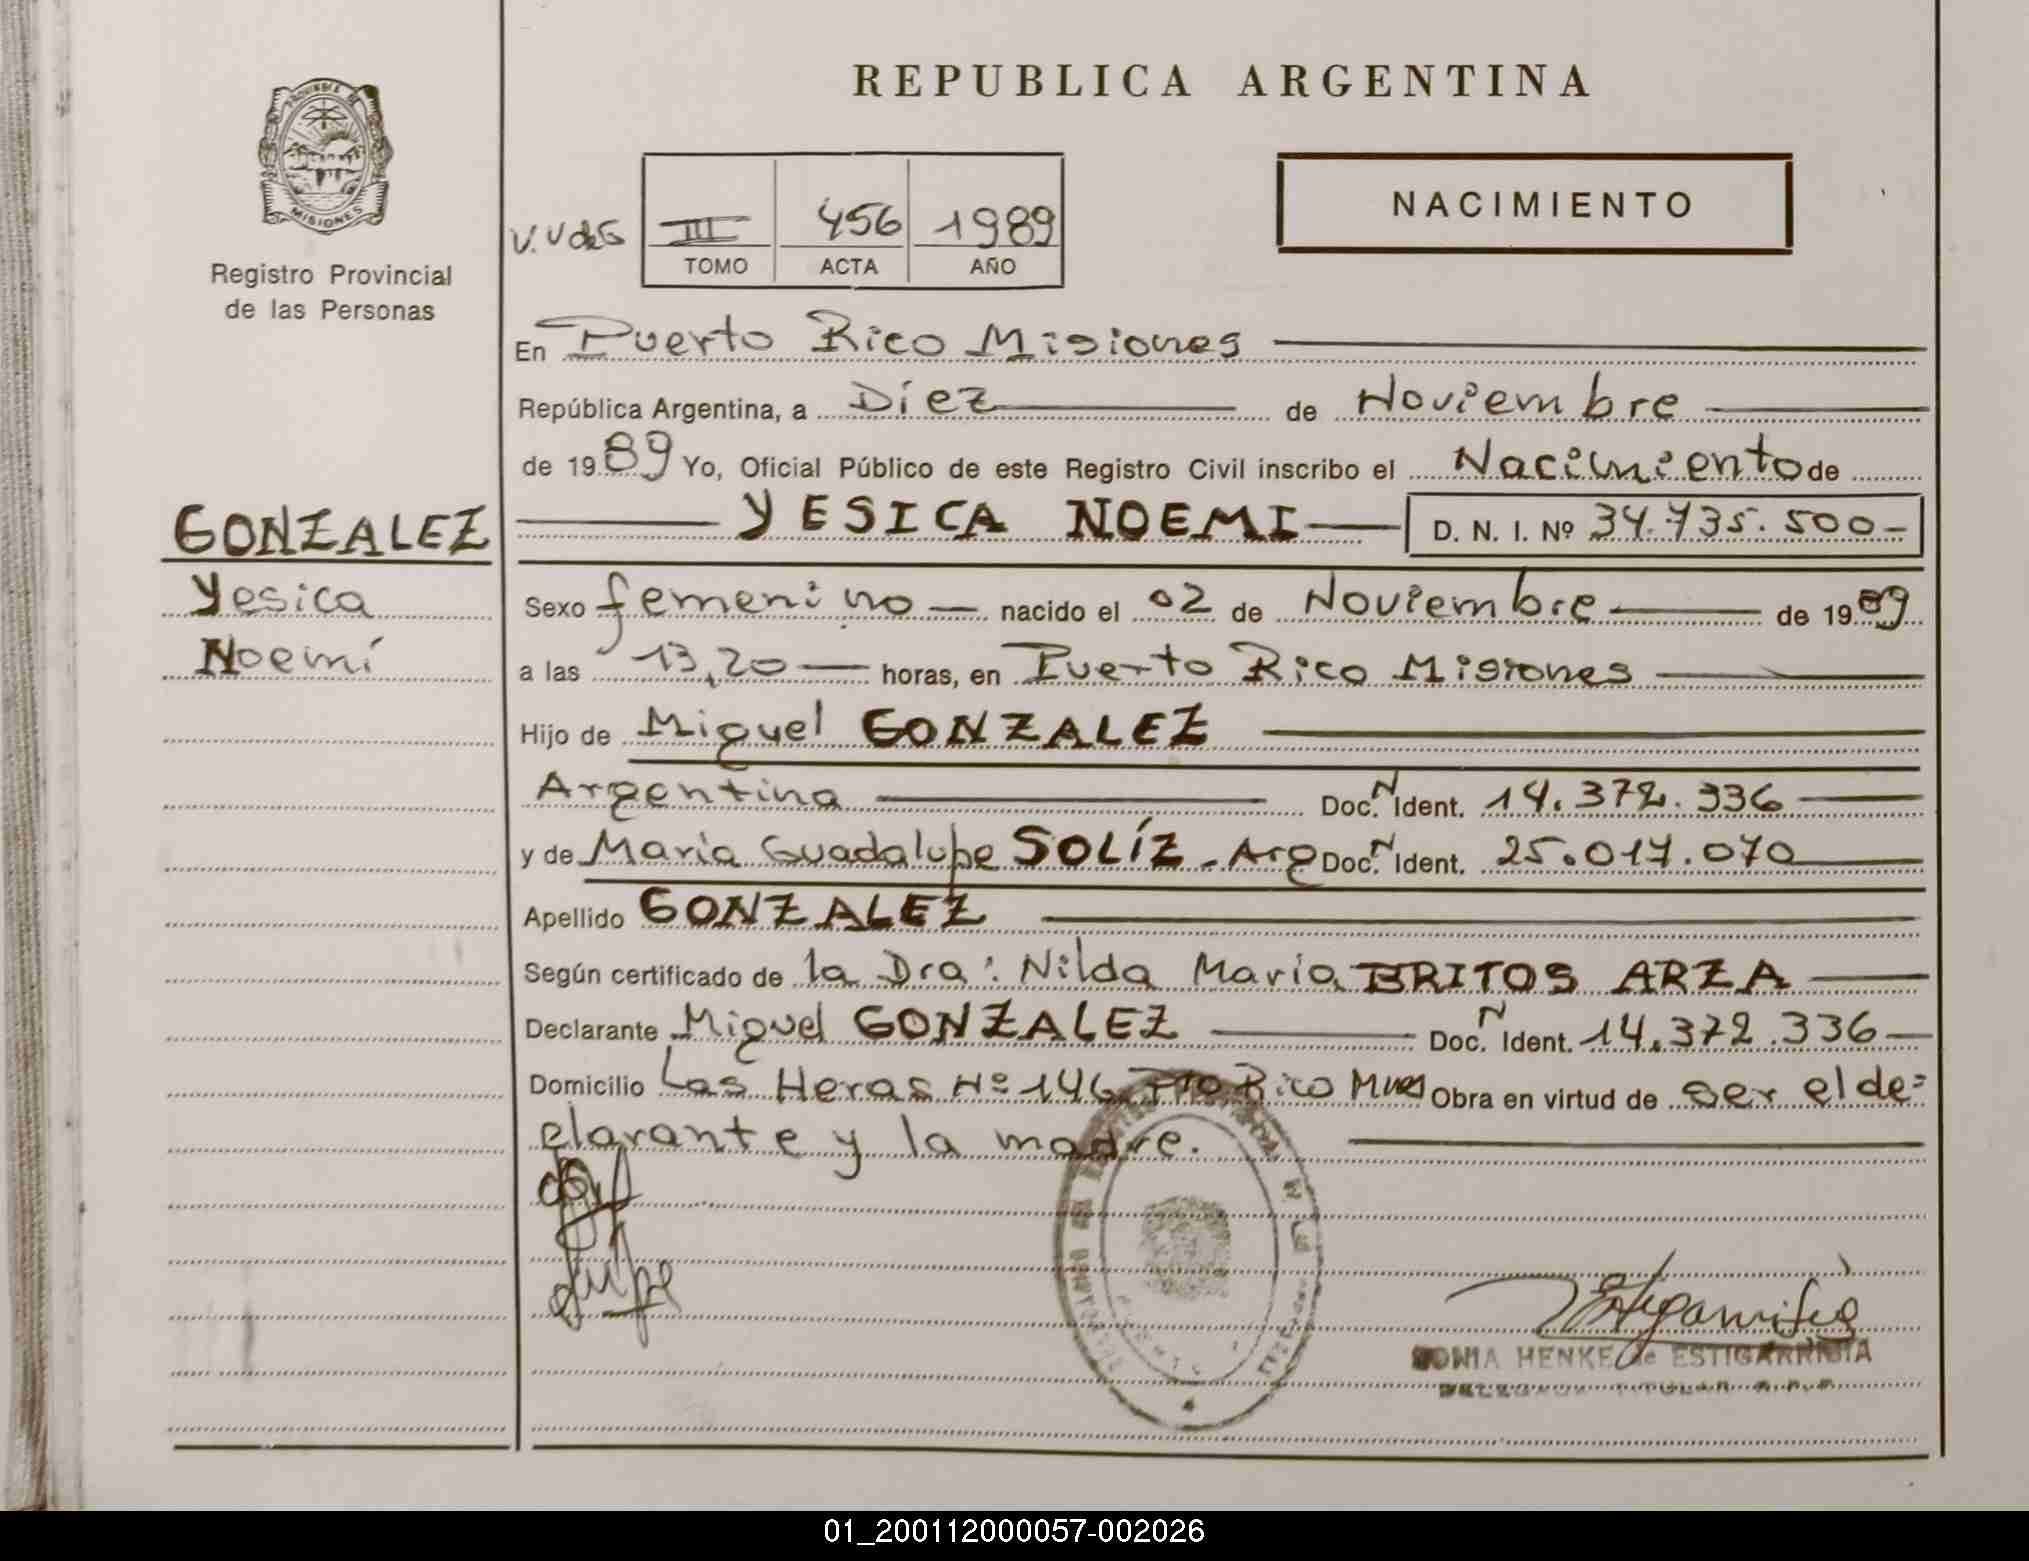 PROVINCIA DE
MISIONES
Registro Provincial
de las Personas
REPUBLICA ARGENTINA
NACIMIENTO
III 456 1989
TOMO ACTA AÑO
En Puerto Rico Misiones
República Argentina, a Diez de Noviembre
de 1989 Yo, Oficial Público de este Registro Civil inscribo el Nacimiento de
GONZALEZ
Yesica
Noemí
YESICA NOEMI D. N. I. Nº 34.735.500-
Sexo femenino nacido el 02 de Noviembre de 1989
a las 13,20 horas, en Puerto Rico Misiones
Hijo de Miguel GONZALEZ
Argentina Doc. N Ident. 14.372.336
y de María Guadalupe SOLÍZ - Arg Doc. N Ident. 25.017.070
Apellido GONZALEZ
Según certificado de la Dra: Nilda María BRITOS ARZA
Declarante Miguel GONZALEZ Doc. N Ident. 14.372.336
Domicilio Las Heras Nº 146 Pto Rico Mnes Obra en virtud de ser el de=
clarante y la madre.
Estigarribia
SONIA HENKE de ESTIGARRIBIA
DELEGADA TITULAR R.P.P.
01_200112000057-002026